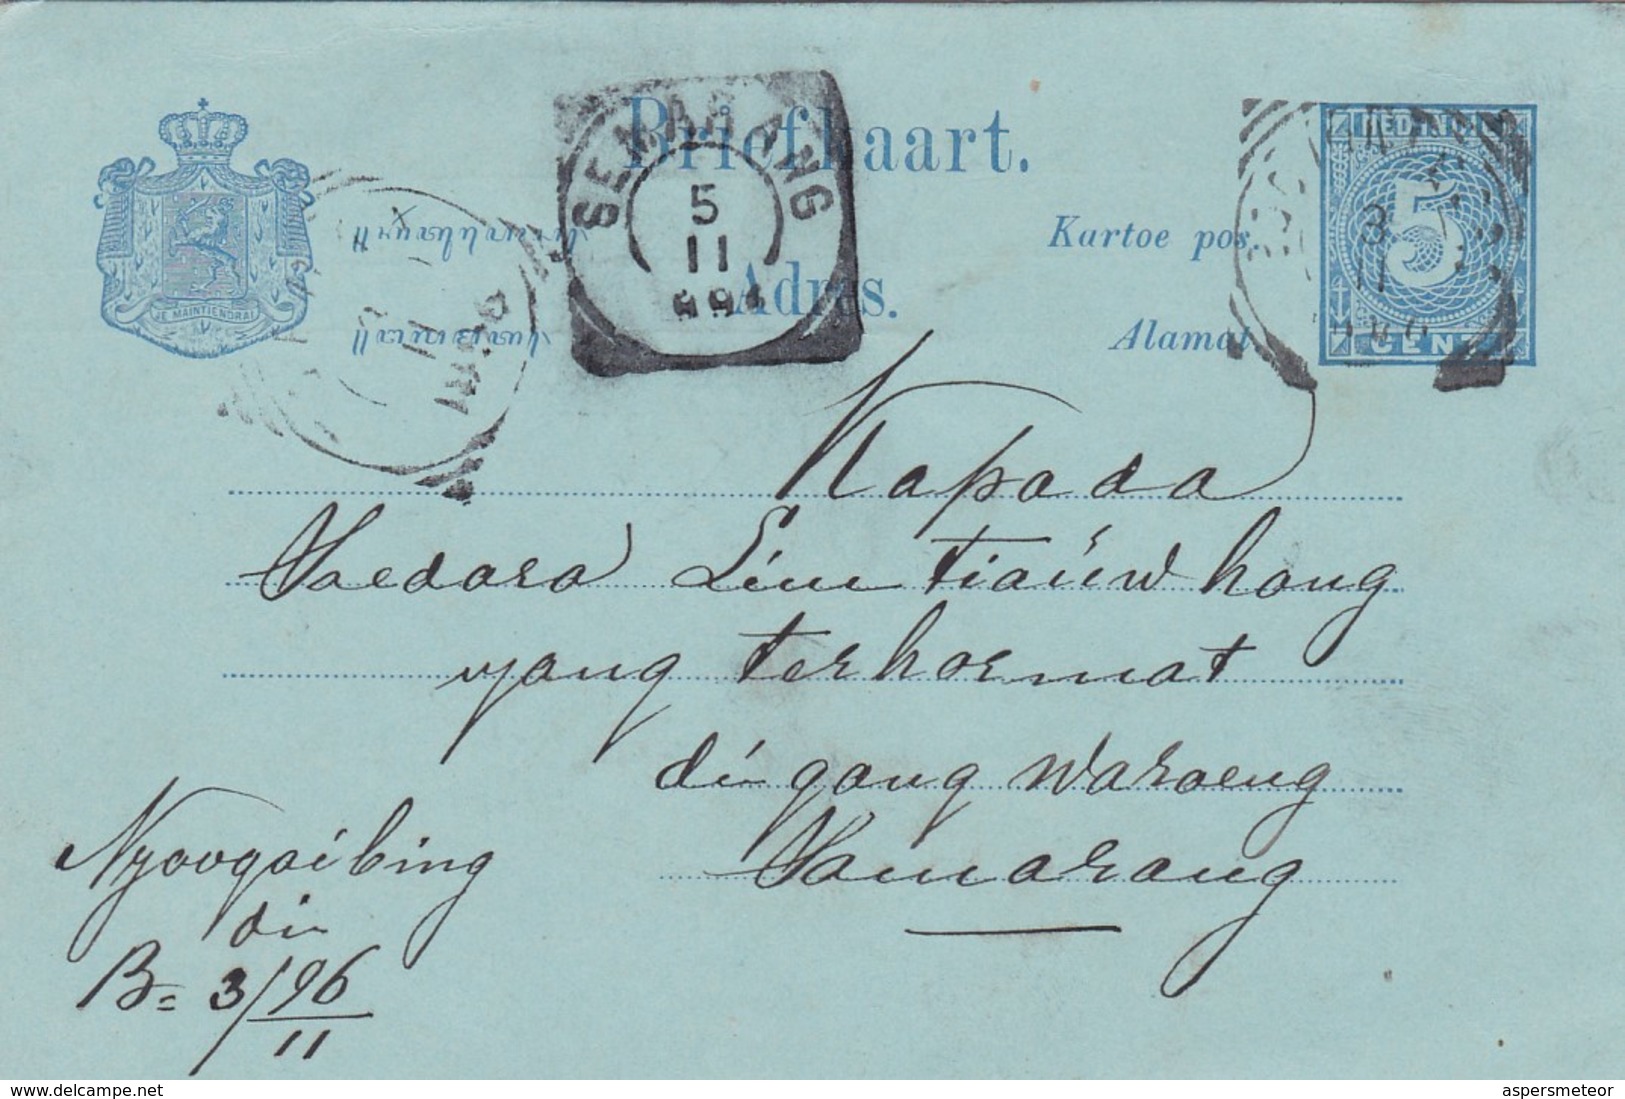 Briefkaart.
Kartoe pos.
Adres.
Alamat
JE MAINTIENDRAI
SEMARANG
5
11
NED. IND.
5
CENT
3
11
Kapada
Soedara Lim Tiauw hong
yang terhormat
di gang Waroeng
Samarang
di
B= 3/96
11
www.delcampe.net
aspersmeteor